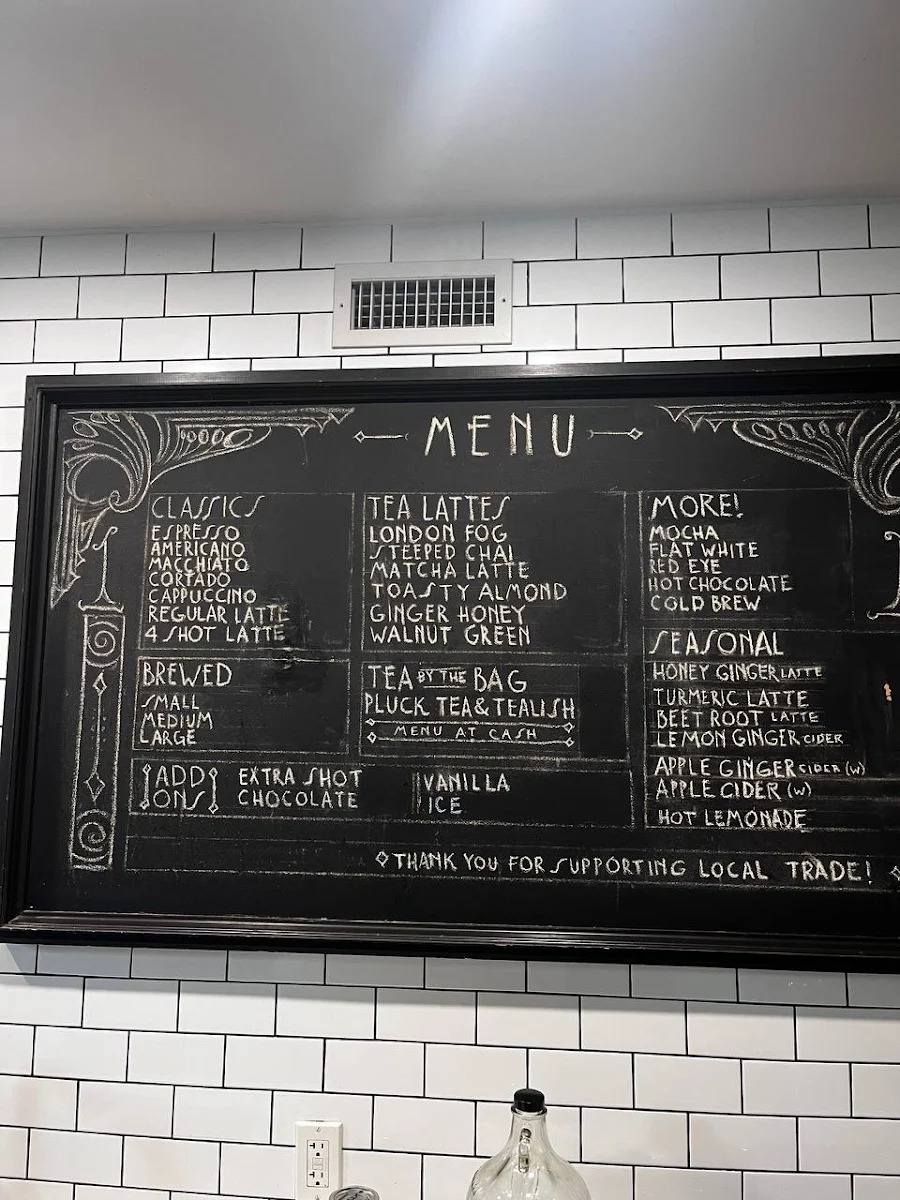 MENU
CLASSICS
ESPRESSO
AMERICANO
MACCHIATO
CORTADO
CAPPUCCINO
REGULAR LATTE
4 SHOT LATTE
BREWED
SMALL
MEDIUM
LARGE
TEA LATTES
LONDON FOG
STEEPED CHAI
MATCHA LATTE
TOASTY ALMOND
GINGER HONEY
WALNUT GREEN
TEA BY THE BAG
PLUCK TEA & TEALISH
MENU AT CASH
ADD ONS
EXTRA SHOT
CHOCOLATE
VANILLA
ICE
MORE!
MOCHA
FLAT WHITE
RED EYE
HOT CHOCOLATE
COLD BREW
SEASONAL
HONEY GINGER LATTE
TURMERIC LATTE
BEET ROOT LATTE
LEMON GINGER CIDER
APPLE GINGER CIDER (W)
APPLE CIDER (W)
HOT LEMONADE
THANK YOU FOR SUPPORTING LOCAL TRADE!